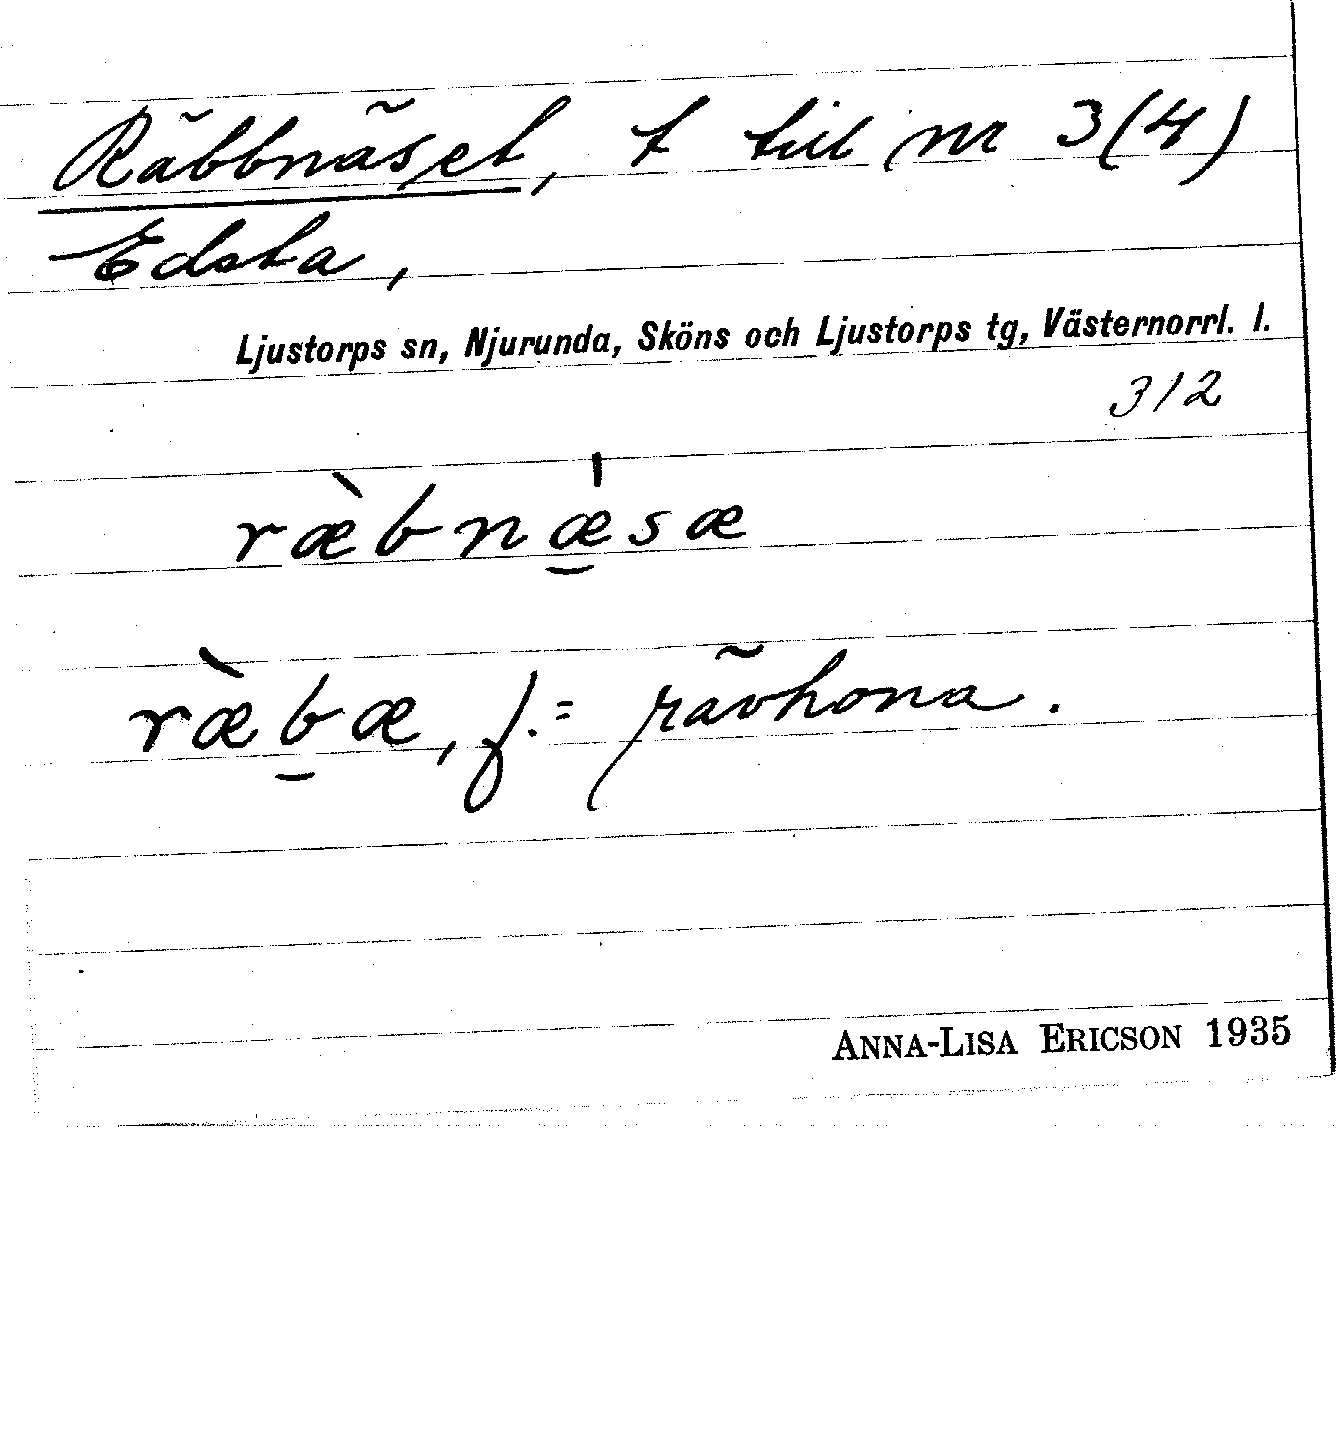 Räbbnäset, t till nr 3(4)
Edsta,
Ljustorps sn, Njurunda, Sköns och Ljustorps tg, Västernorrl. l.
312
ræ̀bnæ̲̍sæ
ræ̀b̲æ, f. = rävhona.
ANNA-LISA ERICSON 1935